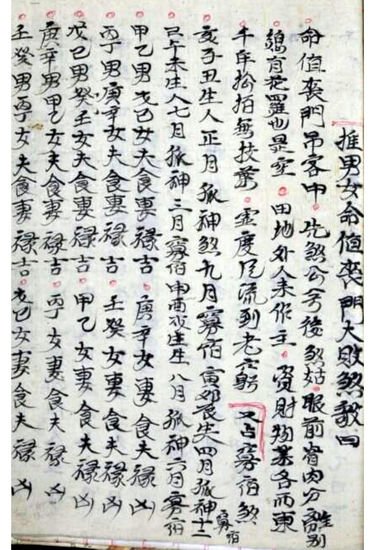 推男女命值喪門大敗煞歌曰
命值喪門吊客中。先煞公方後煞姑。眼前骨肉分離生別
花羅也是空。田地外人来作主。資財物業各西東
千年松柏無枝葉。度尼流到老 又占寡宿煞
亥子丑生人正月孤神煞九月寡宿寅卯辰生四月孤神十二寡宿
巳午未生人七月孤神三月寡宿申酉戌生八月孤神六月寡宿
甲乙男戊己女夫食妻禄吉。庚辛女妻食夫禄凶
丙丁男庚辛女夫食妻禄吉。壬癸女妻食夫禄凶
戊己男癸壬女夫食妻禄吉。甲乙女妻食夫禄凶
庚辛男甲乙女夫食妻禄吉。丙丁女妻食夫禄凶
壬癸男丙丁女夫食妻禄吉。戊己女妻食夫禄凶